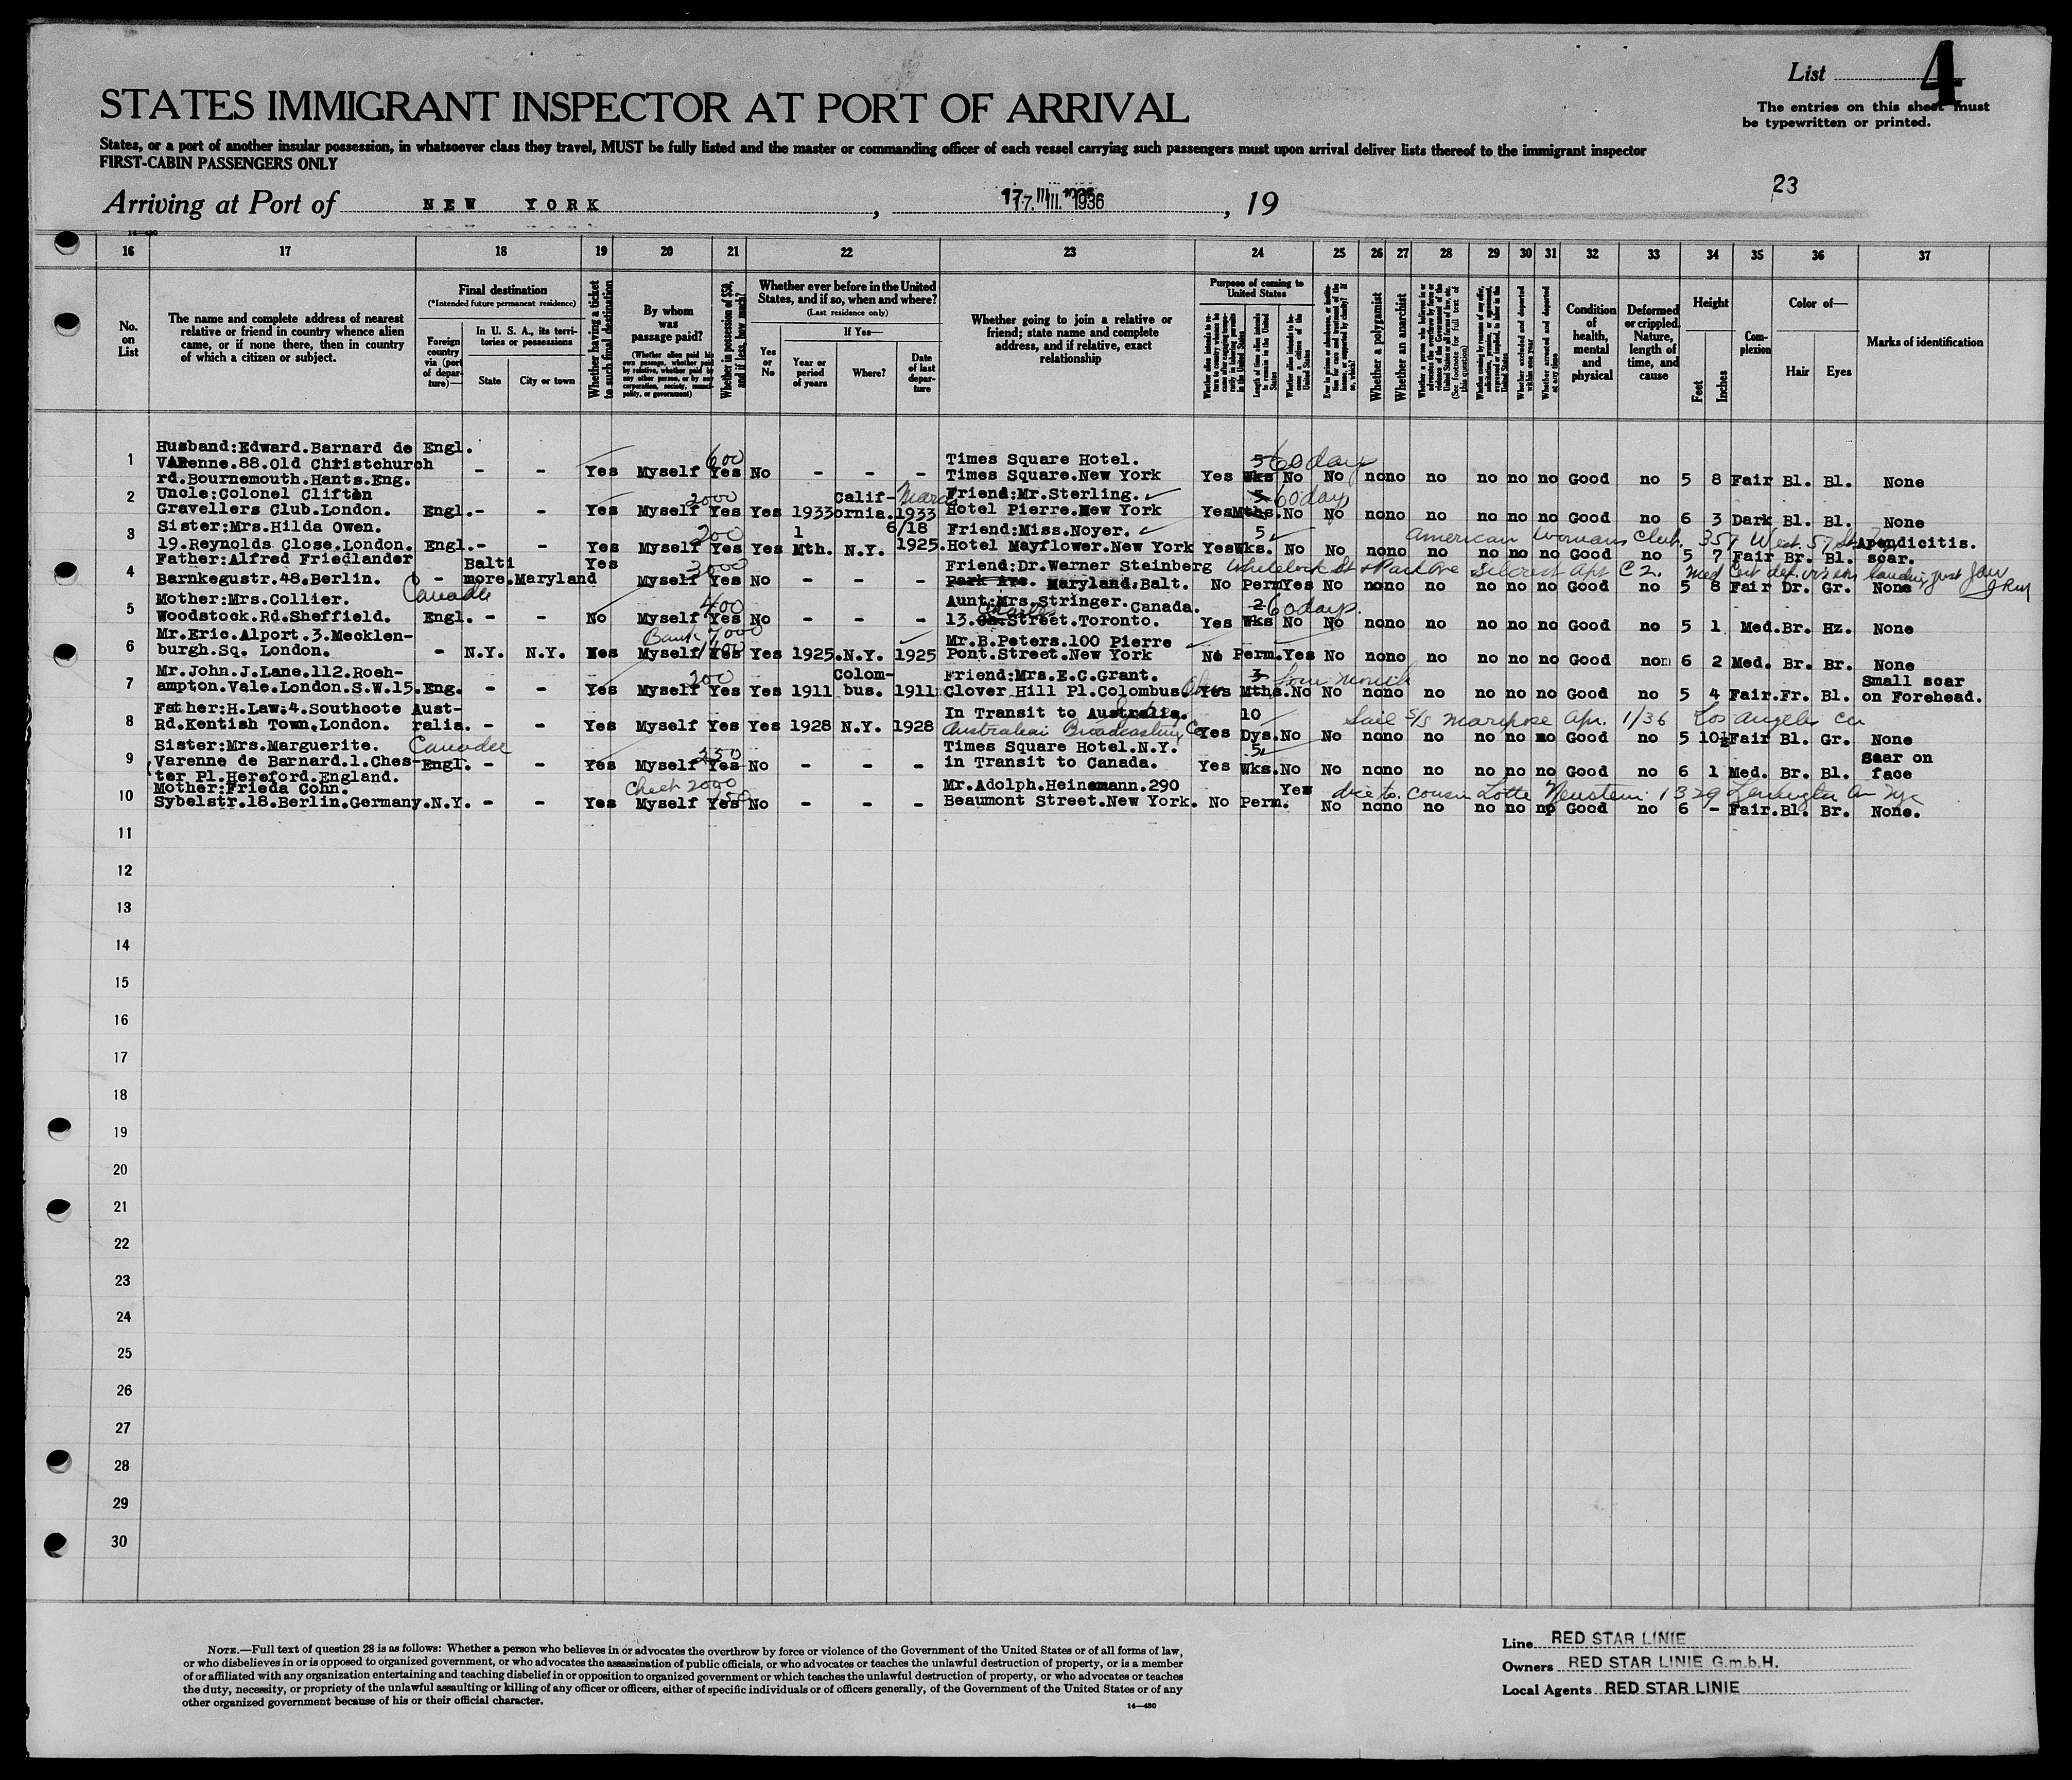 List 4
STATES IMMIGRANT INSPECTOR AT PORT OF ARRIVAL
The entries on this sheet must
be typewritten or printed.
States, or a port of another insular possession, in whatsoever class they travel, MUST be fully listed and the master or commanding officer of each vessel carrying such passengers must upon arrival deliver lists thereof to the immigrant inspector
FIRST-CABIN PASSENGERS ONLY
23
Arriving at Port of NEW YORK, 17. III. 1936, 19
14—430
16 17 18 19 20 21 22 23 24 25 26 27 28 29 30 31 32 33 34 35 36 37
No. on List
The name and complete address of nearest relative or friend in country whence alien came, or if none there, then in country of which a citizen or subject.
Final destination
(*Intended future permanent residence)
Foreign country via (port of departure)—
In U. S. A., its territories or possessions
State
City or town
Whether having a ticket to such final destination
By whom was passage paid?
(Whether alien paid his own passage, whether paid by relative, whether paid by any other person, or by any corporation, society, municipality, or government)
Whether in possession of $50, and if less, how much?
Whether ever before in the United States, and if so, when and where?
(Last residence only)
Yes or No
If Yes—
Year or period of years
Where?
Date of last departure
Whether going to join a relative or friend; state name and complete address, and if relative, exact relationship
Purpose of coming to United States
Length of time alien intends to remain in the United States
Whether alien intends to become a citizen of the United States
Whether a polygamist
Whether an anarchist
Whether excluded and deported within one year
Whether arrested and deported at any time
Condition of health, mental and physical
Deformed or crippled. Nature, length of time, and cause
Height
Feet
Inches
Complexion
Color of—
Hair
Eyes
Marks of identification
1 Husband:Edward.Barnard de Engl.
VARenne.88.Old Christchurch
rd.Bournemouth.Hants.Eng. - - Yes Myself 600 Yes No - - - Times Square Hotel.
Times Square.New York Yes 5 Wks 60 days No No no no no no no no Good no 5 8 Fair Bl. Bl. None
2 Uncle:Colonel Clifton
Gravellers Club.London. Engl. - - Yes Myself 2000 Yes Yes 1933 California. 1933 Friend:Mr.Sterling.
Hotel Pierre.New York Yes 5 Mths. 60 days No No no no no no no no Good no 6 3 Dark Bl. Bl. None
3 Sister:Mrs.Hilda Owen.
19.Reynolds Close.London. Engl. - - Yes Myself 200 Yes Yes 1 Mth. N.Y. 6/18 1925. Friend:Miss.Noyer.
Hotel Mayflower.New York Yes 5 Wks. No No no no no no no no Good no 5 7 Fair Br. Bl. Apendicitis. scar.
American Womans Club. 357 West. 57 St
4 Father:Alfred Friedlander
Barnkegustr.48.Berlin. - Baltimore.Maryland Yes Myself 3000 Yes No - - - Friend:Dr.Werner Steinberg
Park Ave. Maryland.Balt. No Perm Yes No no no no no no no Good no 5 8 Fair Dr. Gr. None
Apt C 2.
5 Canada
Mother:Mrs.Collier.
Woodstock.Rd.Sheffield. Engl. - - No Myself 400 Yes No - - - Aunt:Mrs.Stringer.Canada.
13. Charles Street.Toronto. Yes 2 Wks 60 days. No No no no no no no no Good no 5 1 Med. Br. Hz. None
6 Mr.Eric.Alport.3.Mecklen-
burgh.Sq. London. - N.Y. N.Y. Yes Myself Bank 7000 Yes Yes 1925. N.Y. 1925 Mr.B.Peters.100 Pierre
Pont.Street.New York No Perm. Yes No no no no no no no Good non 6 2 Med. Br. Br. None
7 Mr.John.J.Lane.112.Roeh-
ampton.Vale.London.S.W.15. Eng. - - Yes Myself 200 Yes Yes 1911 Colombus. 1911 Friend:Mrs.E.C.Grant.
Clover Hill Pl.Colombus. Ohio Yes 3 Mths. No No no no no no no no Good no 5 4 Fair. Fr. Bl. Small scar on Forehead.
8 Father:H.Law.4.Southcote Aust-
Rd.Kentish Town.London. ralia. - - Yes Myself Yes Yes 1928 N.Y. 1928 In Transit to Australia.
Australian Broadcasting Co Yes 10 Dys. No No no no no no no no Good no 5 10½ Fair Bl. Gr. None
Sail S/S Mariposa Apr. 1/36 Los Angeles Ca
9 Canada
Sister:Mrs.Marguerite.
Varenne de Barnard.1.Ches-
ter Pl.Hereford.England. Engl. - - Yes Myself 250 Yes No - - - Times Square Hotel.N.Y.
in Transit to Canada. Yes 5 Wks. No No no no no no no no Good no 6 1 Med. Br. Bl. Scar on face
10 Mother:Frieda Cohn.
Sybelstr.18.Berlin.Germany. N.Y. - - Yes Myself Check 2000 Yes No - - - Mr.Adolph.Heinemann.290
Beaumont Street.New York. No Perm. Yes No no no no no no no Good no 6 - Fair. Bl. Br. None.
cousin Lotte 1329 Lexington Av Nyc
11
12
13
14
15
16
17
18
19
20
21
22
23
24
25
26
27
28
29
30
NOTE.—Full text of question 28 is as follows: Whether a person who believes in or advocates the overthrow by force or violence of the Government of the United States or of all forms of law,
or who disbelieves in or is opposed to organized government, or who advocates the assassination of public officials, or who advocates or teaches the unlawful destruction of property, or is a member
of or affiliated with any organization entertaining and teaching disbelief in or opposition to organized government or which teaches the unlawful destruction of property, or who advocates or teaches
the duty, necessity, or propriety of the unlawful assaulting or killing of any officer or officers, either of specific individuals or of officers generally, of the Government of the United States or of any
other organized government because of his or their official character.
14—430
Line RED STAR LINIE
Owners RED STAR LINIE G.m.b.H.
Local Agents RED STAR LINIE